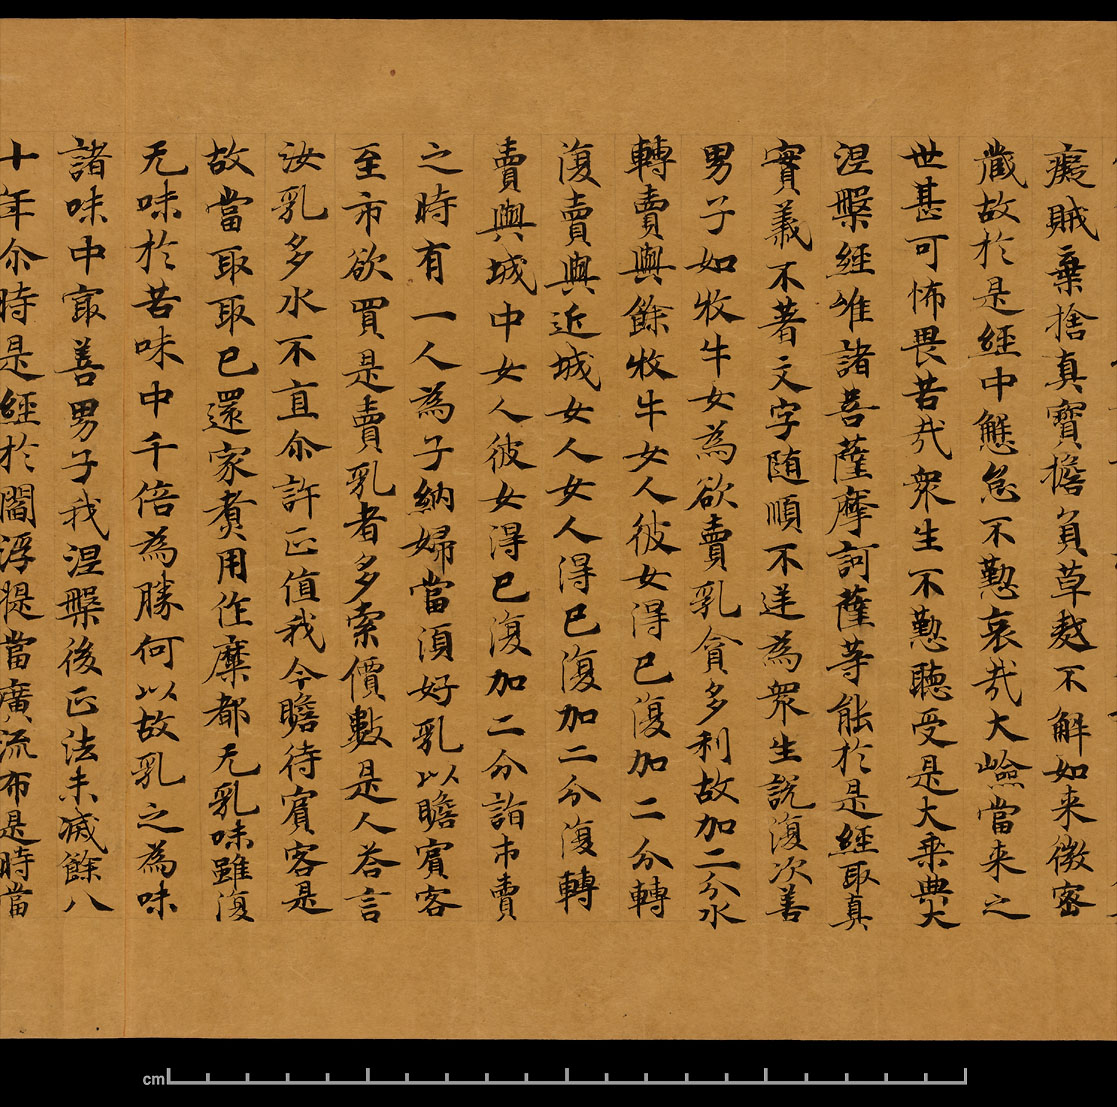 癡賊棄捨真寶擔負草𪍿不解如来微密
蔵故於是經中懈怠不懃哀㢤大嶮當来之
世甚可怖畏苦㢤衆生不懃聽受是大乗典大
涅槃經唯諸菩薩摩訶薩等能於是經取真
實義不著文字随順不逆為衆生說復次善
男子如牧牛女為欲賣乳貪多利故加二分水
轉賣與餘牧牛女人彼女得已復加二分轉
復賣與近城女人女人得已復加二分復轉
賣與城中女人彼女得已復加二分詣市賣
之時有一人為子納婦當須好乳以贍賓客
至市欲買是賣乳者多索價數是人荅言
汝乳多水不直尒許正值我今瞻待賓客是
故當取取已還家煮用作糜都无乳味雖復
无味於苦味中千倍為勝何以故乳之為味
諸味中㝡善男子我涅槃後正法未滅餘八
十年尒時是經於閻浮提當廣流布是時當